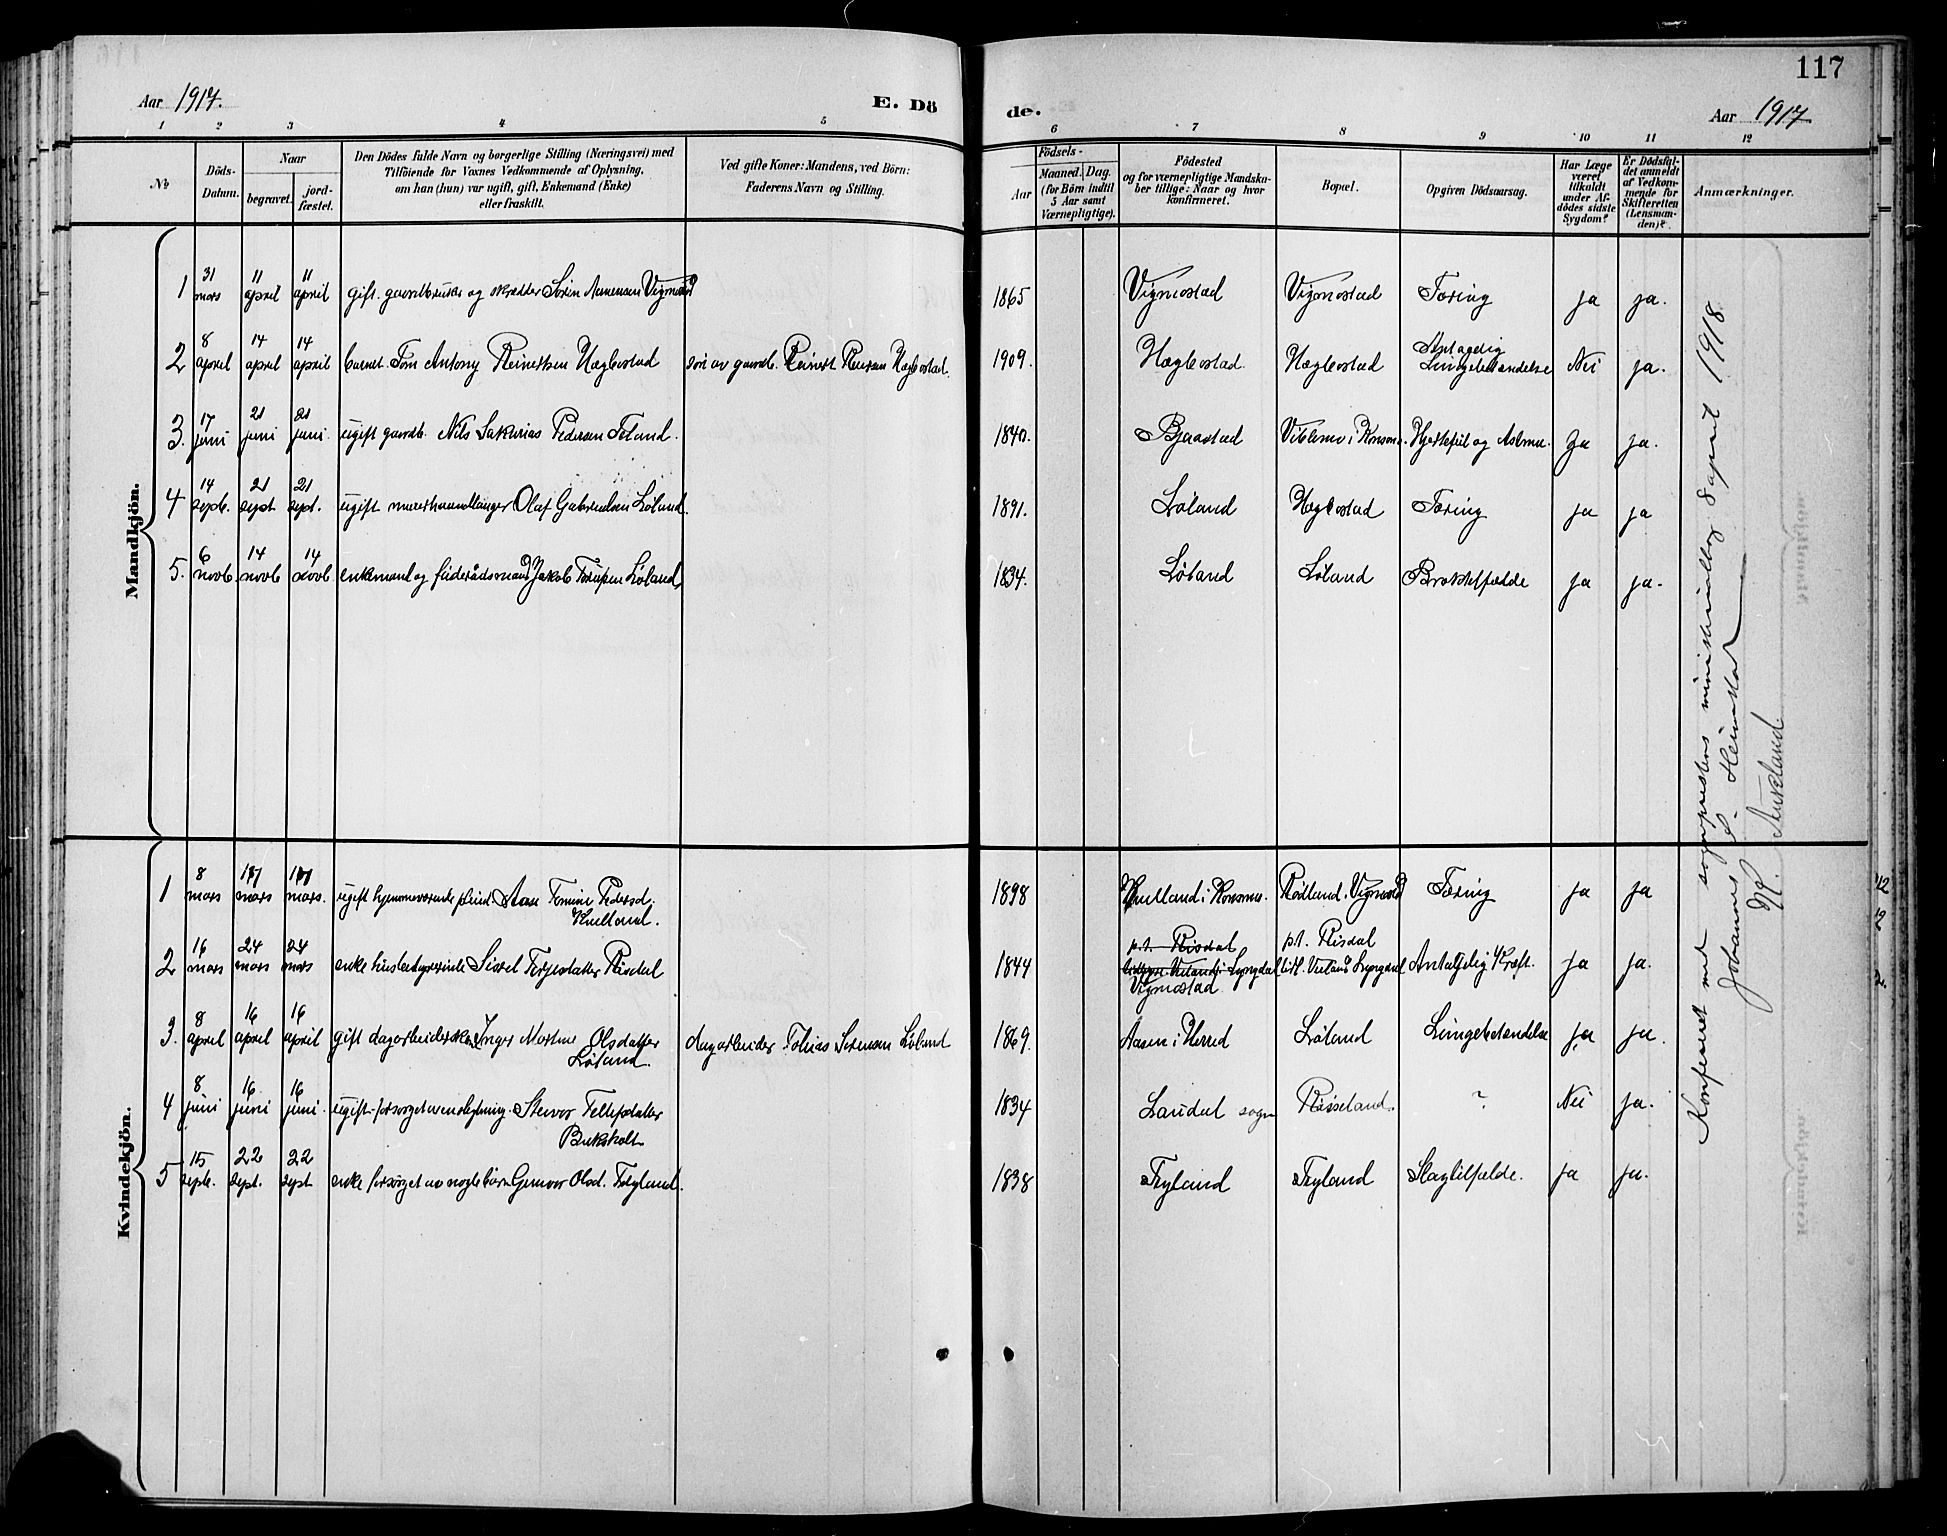 117
Aar 1917.
E. Dö
de.
Aar 1917
1 2 3 4 5 6 7 8 9 10 11 12
№
Döds-
Datum.
Naar
begravet.
jord-
fæstet.
Den Dödes fulde Navn og borgerlige Stilling (Næringsvei) med
Tilföiende for Voxnes Vedkommende af Oplysning,
om han (hun) var ugift, gift, Enkemand (Enke)
eller fraskilt.
Ved gifte Koner: Mandens, ved Börn:
Faderens Navn og Stilling.
Födsels-
Aar
Maaned. Dag.
(for Börn indtil
5 Aar samt
Værnepligtige).
Födested
og for værnepligtige Mandska-
ber tillige: Naar og hvor
konfirmeret.
Bopæl.
Opgiven Dödsaarsag.
Har Læge
været
tilkaldt
under Af-
dödes sidste
Sygdom?
Er Dödsfal-
det anmeldt
af Vedkom-
mende for
Skifteretten
(Lensman-
den)?
Anmærkninger.
Mandkjön.
1 31 mars 11 april 11 april gift. gaardbruker og skrædder Sørin Vigmostad 1865 Vigmostad Vigmostad Tæring ja ja.
2 8 april 14 april 14 april barnet Tom Antony Reinertsen Hægbostad søn av gaardb. Reinert Hægbostad. 1909. Hægbostad. Hægbostad Antagelig Lungebetændelse Nei ja.
3. 17 juni 21 juni 21 juni. ugift gaardb. Nils Sakarias Pedersen 1840. Bjaastad i Konsmo. Hjertefeil og Astma. Ja ja.
4 14 septb. 21 sept 21 sept. ugift murerhaandlanger Olaf Gabrielsen Løland. 1891. Løland Hægbostad Tæring ja ja
5. 6 novb. 14 novb 14 novb. enkmand og føderådsmand Jakob Løland 1834. Løland Løland Brokktilfælde ja ja.
Kvindekjön.
1 8 mars 17 mars 17 mars. ugift hjemmeværende Pedersd. 1898 i Konsmo. Vigmostad Tæring ja ja
2 16 mars 24 mars 24 mars enke husbestyrerinde Sissel Terjesdatter Risdal 1844 p.t. Risdal Lyngdal
Vigmostad p.t. Risdal Lyngdal Antagelig Kræft. ja ja.
3. 8 april 16 april 16 april gift dagarbeiderske Inger Martine Olsdatter
Løland. dagarbeider Tobias Sørensen Løland 1869. Aasen i Herred Løland Lungebetændelse ja ja.
4 8 juni 16 juni 16 juni. ugift forsorget av en slegtning. Tellefsdatter
Buksholt 1834 Laudal sogn Risseland. ? Nei ja.
5 15 septb. 22 sept. 22 sept enke forsørget av nogle børn Gunvor Olsd. Fryland. 1838 Fryland Fryland Slagtilfælde. ja ja.
Konfereret med sogneprestens ministerialbog 8 april 1918.
Johannes S. Heimstad
N. Aukland